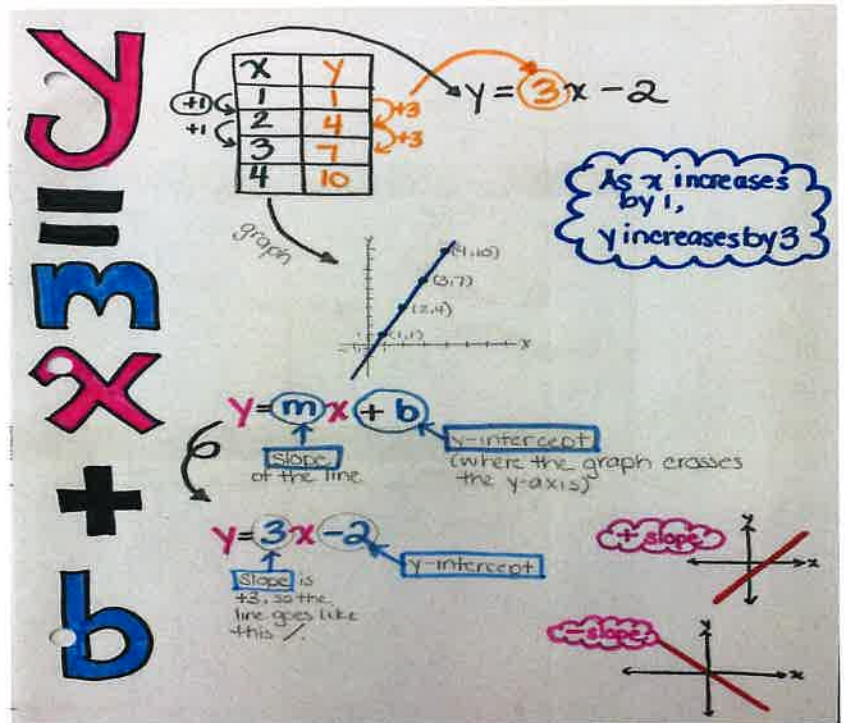 y
=
m
x
+
b
x y
1 1
2 4
3 7
4 10
+1
+1
+3
+3
y = 3x - 2
As x increases
by 1,
y increases by 3
graph
y
(4,10)
(3,7)
(2,4)
(1,1)
x
y = mx + b
slope
of the line
y-intercept
(where the graph crosses
the y-axis)
y = 3x - 2
slope is
+3, so the
line goes like
this /.
y-intercept
+ slope
y
x
- slope
y
x